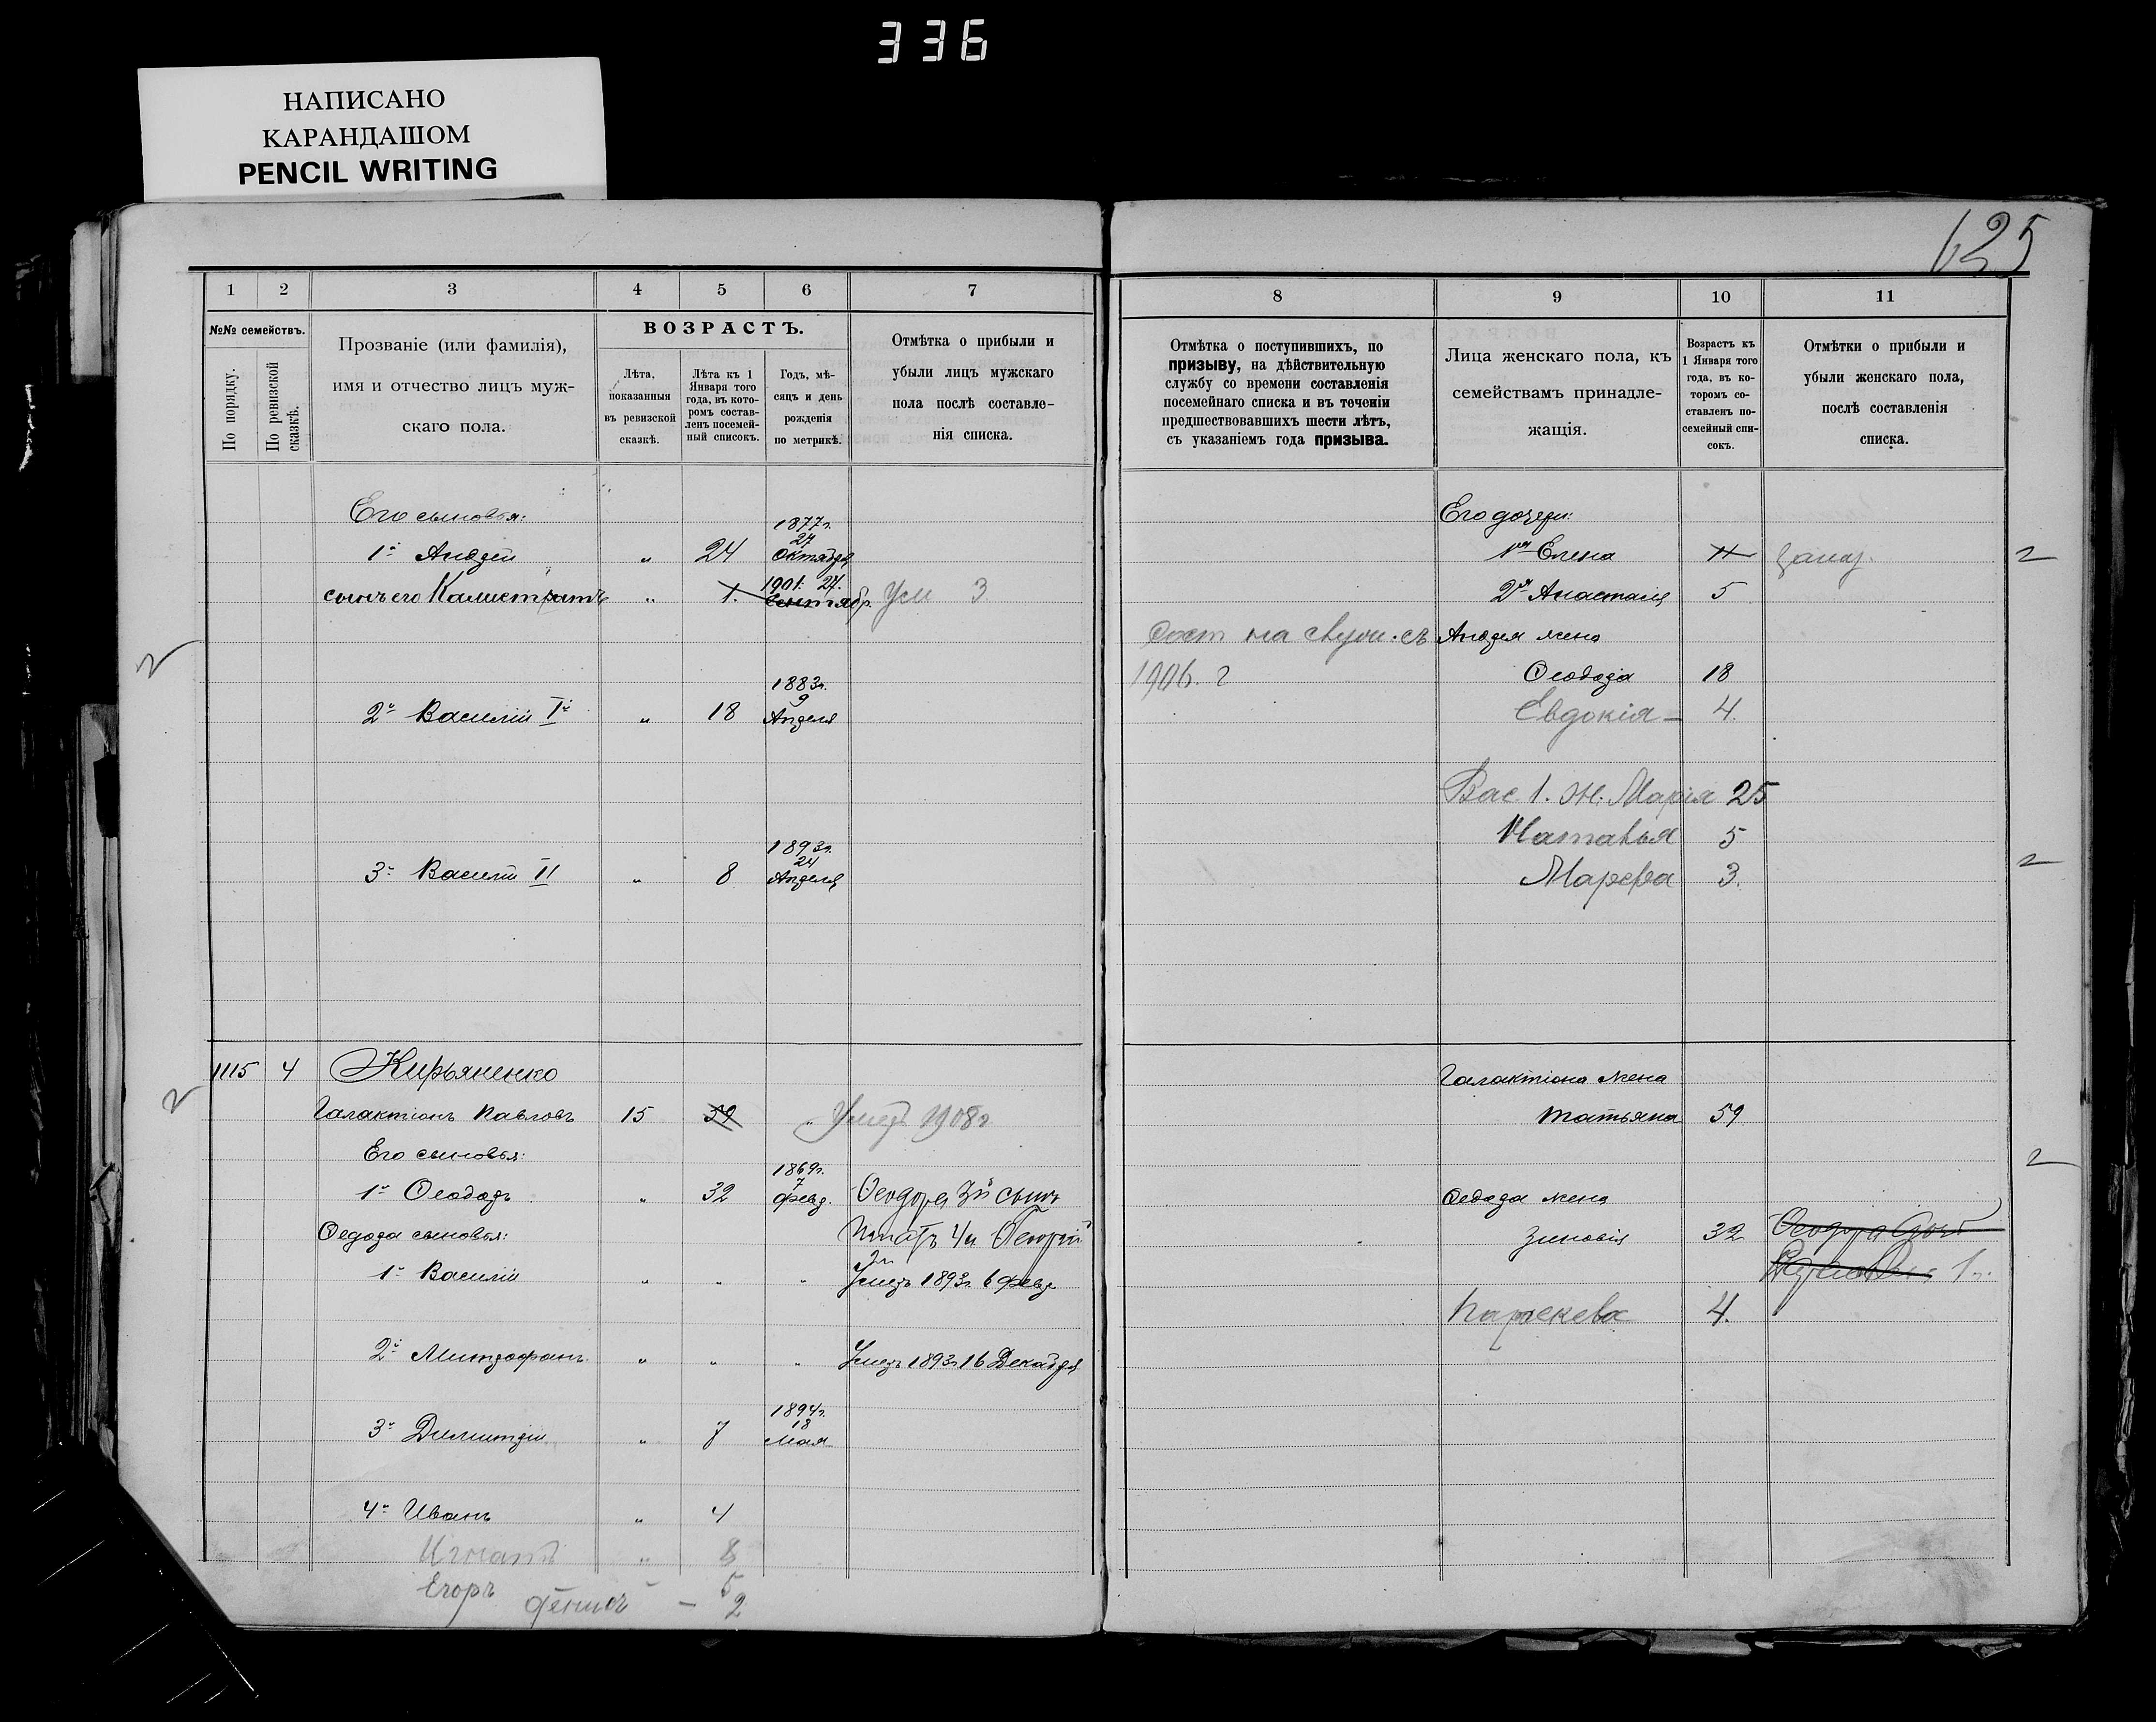 336
НАПИСАНО
КАРАНДАШОМ
PENCIL WRITING
125
1 2 3 4 5 6 7
№№ семействъ.
По порядку.
По ревизской сказкѣ.
Прозваніе (или фамилія),
имя и отчество лицъ муж-
скаго пола.
ВОЗРАСТЪ.
Лѣта,
показанныя
въ ревизской
сказкѣ.
Лѣта къ 1
Января того
года, въ кото-
ромъ состав-
ленъ посемей-
ный списокъ.
Годъ, мѣ-
сяцъ и день
рожденія
по метрикѣ.
Отмѣтка о прибыли и
убыли лицъ мужскаго
пола послѣ составле-
нія списка.
Его сыновья:
1й Андрей " 24 1877г. 27 Октября
сынъ его Калистратъ " 1. 1901. 24. Сентябр. Ум 3
2й Василій Iй " 18 1883г. 9 Апреля
3й Василій II " 8 1893г. 24 Апреля
1115 4 Кирьяненко
Галактіонъ Павловъ 15 59 " Умеръ 1908г
Его сыновья:
1й Ѳеодоръ " 32 1869г. 7 февр. Ѳеодора 3й сынъ
Ѳедора сыновья: Игнатъ 4й Георгій
1й Василій " " " Умеръ 1893г. 6 февр
2й Митрофанъ " " " Умеръ 1893г 16 Декабря
3й Димитрій " 7 1894г. 18 Мая
4й Иванъ " 4
Игнатъ " 8
Егоръ 5
2
8 9 10 11
Отмѣтка о поступившихъ, по
призыву, на дѣйствительную
службу со времени составленія
посемейнаго списка и въ теченіи
предшествовавшихъ шести лѣтъ,
съ указаніемъ года призыва.
Лица женскаго пола, къ
семействамъ принадле-
жащія.
Возрастъ къ
1 Января того
года, въ ко-
торомъ со-
ставленъ по-
семейный спи-
сокъ.
Отмѣтки о прибыли и
убыли женскаго пола,
послѣ составленія
списка.
Его дочери:
1я Елена 11
2я Анастасія 5
Сост на служ. съ Андрея жена
1906. г Ѳеодора 18
Евдокія - 4.
Вас 1. ж. Марія 25
Наталья 5
Марфа 3.
Галактіона жена
Татьяна 59
Ѳедора жена
Зиновія 32
Параскева 4.